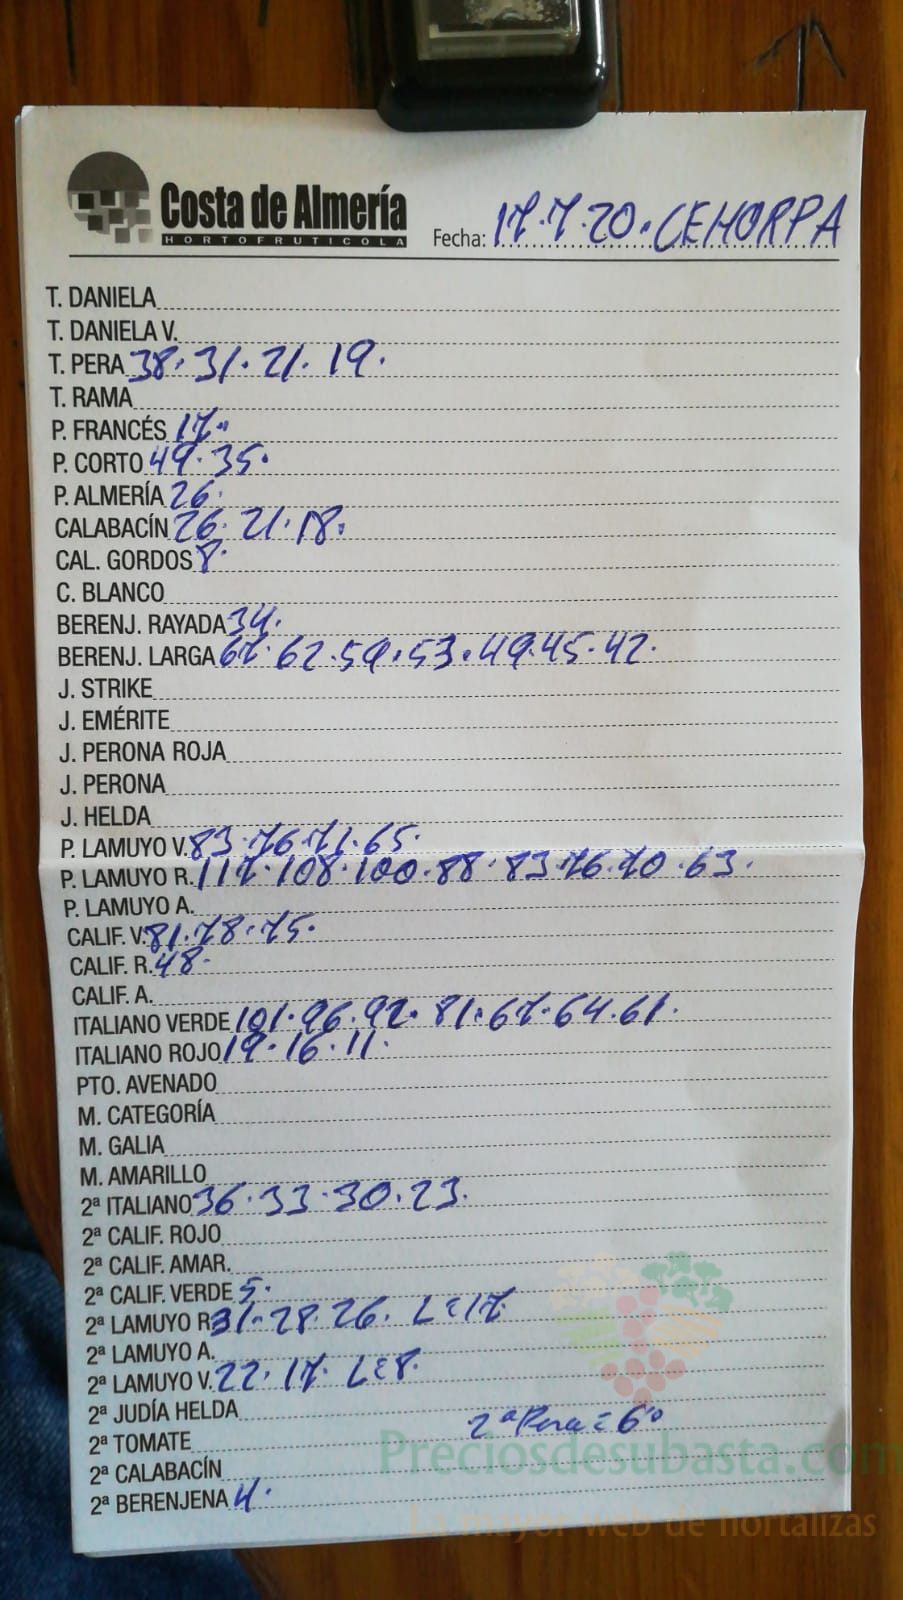 Costa de Almería
HORTOFRUTICOLA
Fecha: 17.7.20. CEHORPA
T. DANIELA
T. DANIELA V.
T. PERA 38. 31. 21. 19.
T. RAMA
P. FRANCÉS 17.
P. CORTO 49. 35.
P. ALMERÍA 26.
CALABACÍN 26. 21. 18.
CAL. GORDOS 8.
C. BLANCO
BERENJ. RAYADA 34.
BERENJ. LARGA 67. 62. 59. 53. 49. 45. 42.
J. STRIKE
J. EMÉRITE
J. PERONA ROJA
J. PERONA
J. HELDA
P. LAMUYO V. 83. 76. 71. 65.
P. LAMUYO R. 117. 108. 100. 88. 83. 76. 70. 63.
P. LAMUYO A.
CALIF. V. 81. 78. 75.
CALIF. R. 48.
CALIF. A.
ITALIANO VERDE 101. 96. 92. 81. 67. 64. 61.
ITALIANO ROJO 19. 16. 11.
PTO. AVENADO
M. CATEGORÍA
M. GALIA
M. AMARILLO
2ª ITALIANO 36. 33. 30. 23.
2ª CALIF. ROJO
2ª CALIF. AMAR.
2ª CALIF. VERDE 5.
2ª LAMUYO R. 31. 28. 26. L=17
2ª LAMUYO A.
2ª LAMUYO V. 22. 17. L=8.
2ª JUDÍA HELDA
2ª Pera = 6
2ª TOMATE
Preciosdesubasta.com
2ª CALABACÍN
2ª BERENJENA 4.
La mayor web de hortalizas